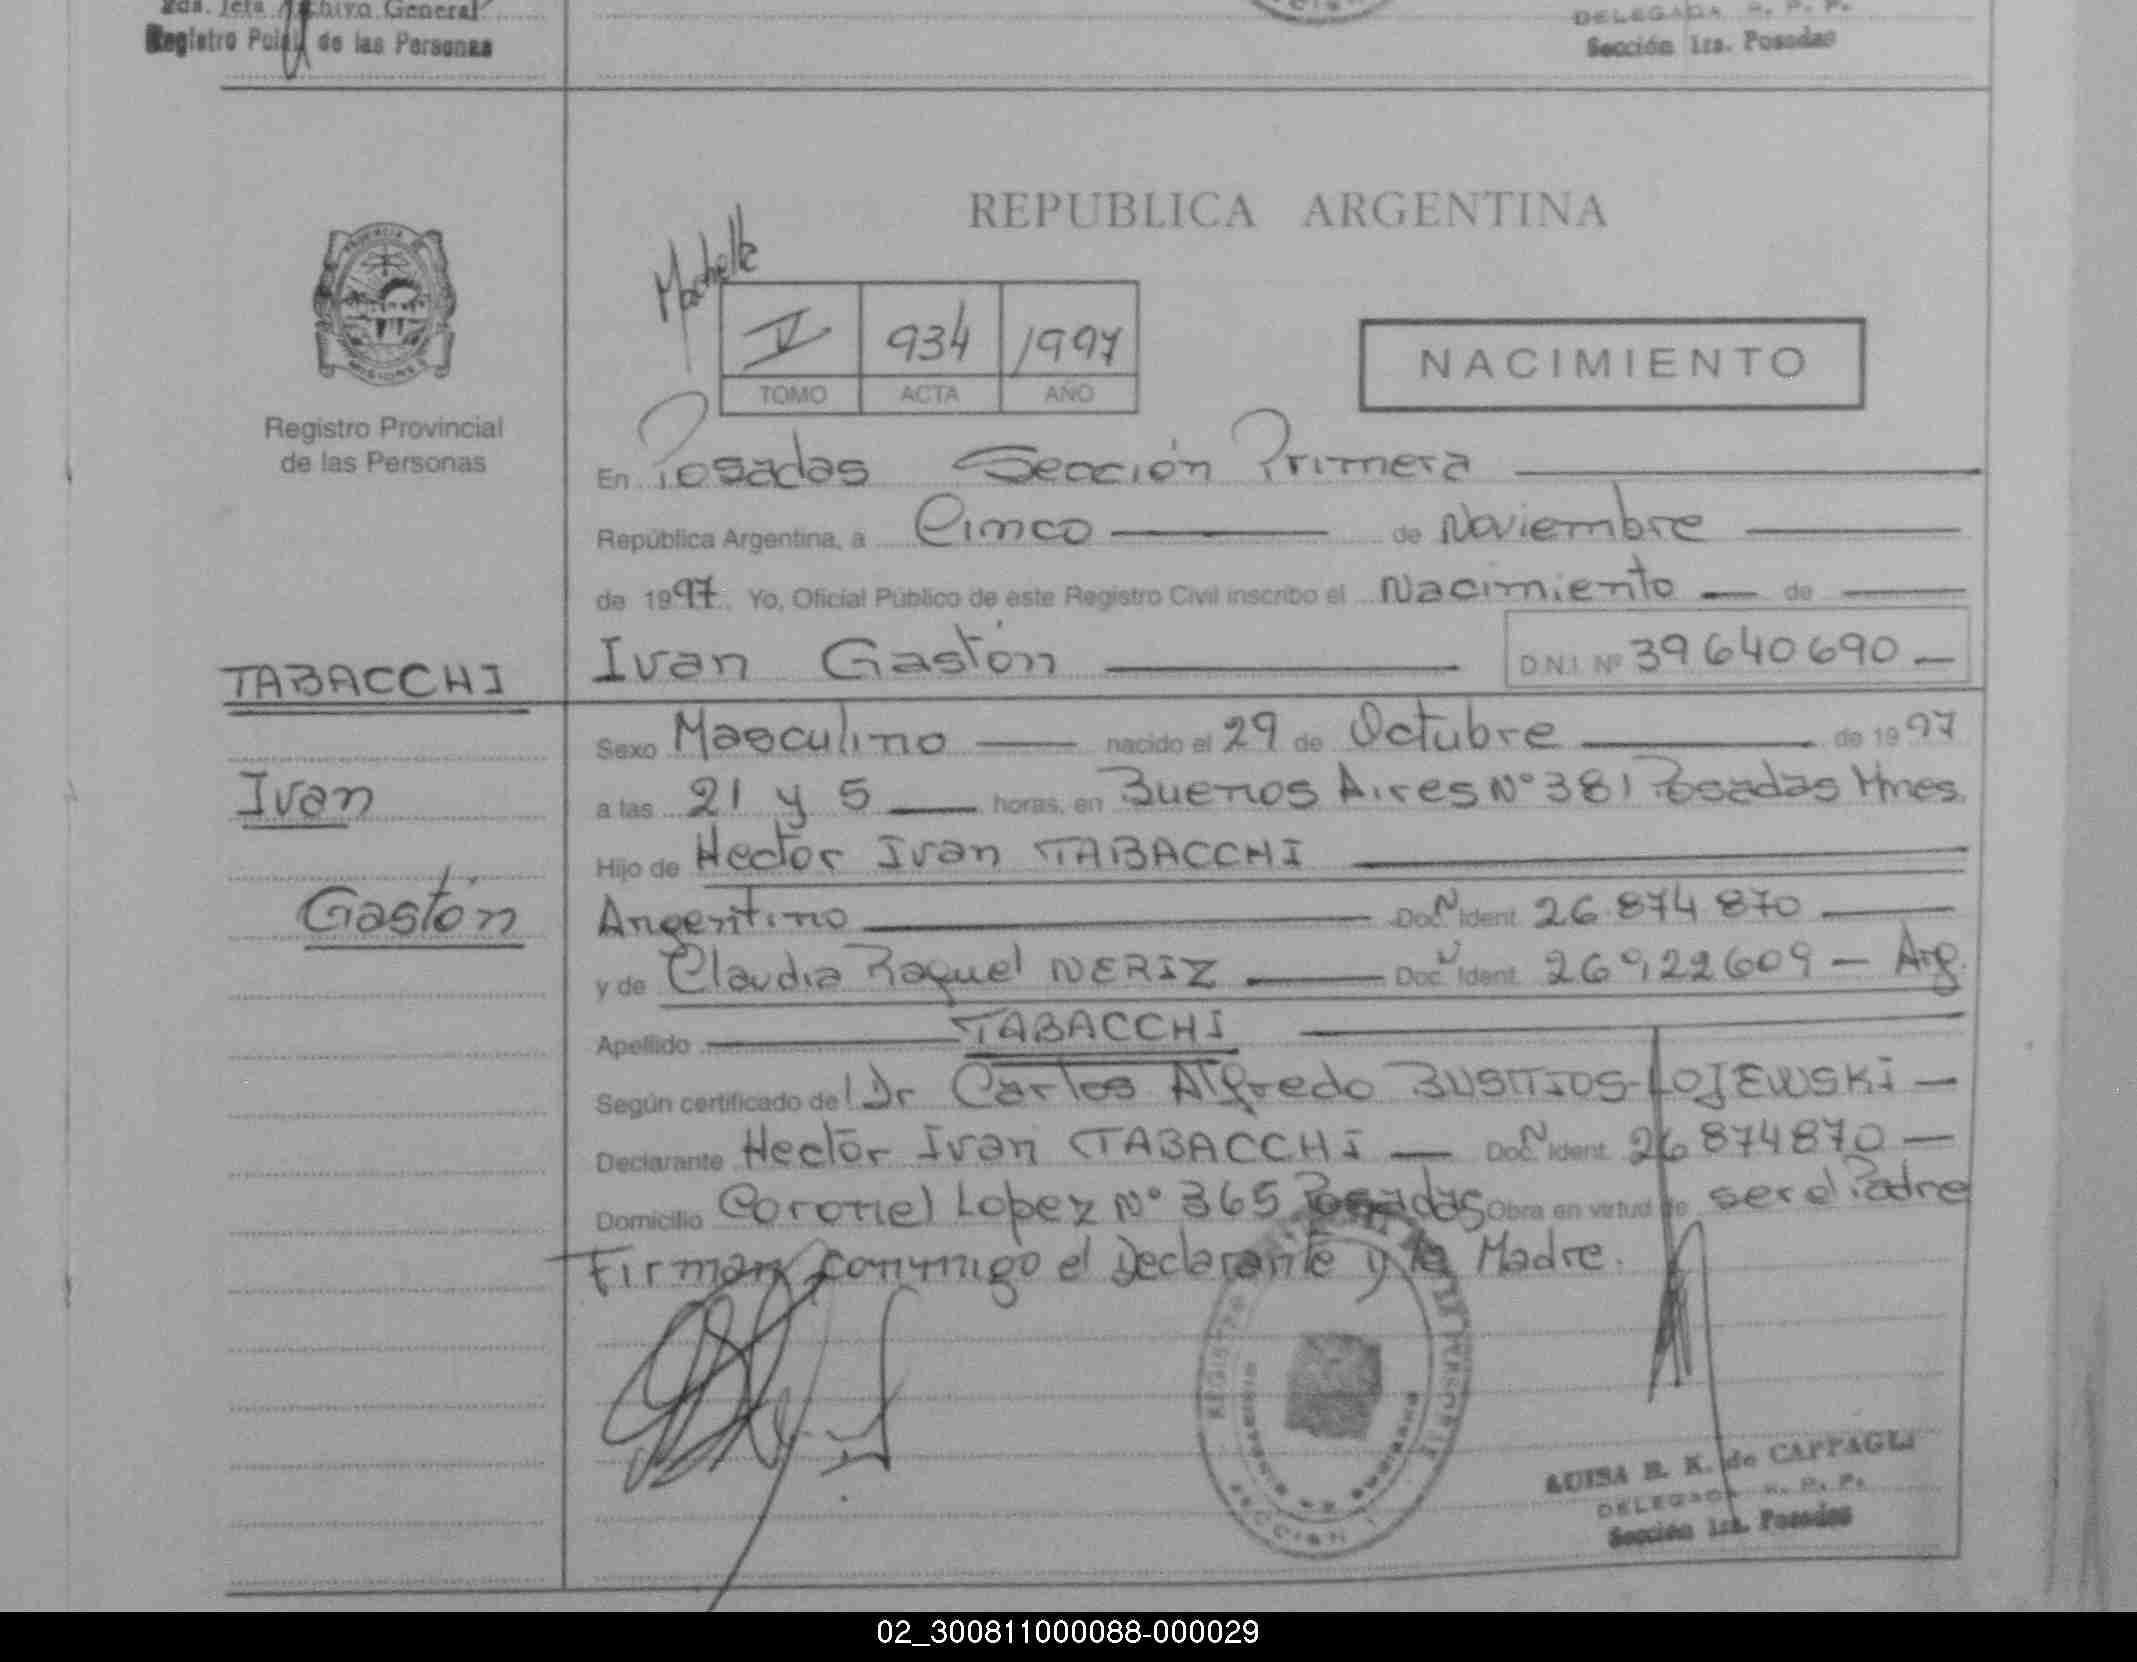 2da. Jefa Archivo General
Registro Pcial. de las Personas
DELEGADA R. P. P.
Sección 1ra. Posadas
REPUBLICA ARGENTINA
V 934 1997
TOMO ACTA AÑO
NACIMIENTO
Registro Provincial
de las Personas
En Posadas Sección Primera
República Argentina, a Cinco de Noviembre
de 1997. Yo, Oficial Público de este Registro Civil inscribo el Nacimiento de
TABACCHI
Ivan Gastón D.N.I. Nº 39640690
Sexo Masculino nacido el 29 de Octubre de 1997
Ivan
a las 21 y 5 horas, en Buenos Aires Nº 381 Posadas Mnes.
Hijo de Hector Ivan TABACCHI
Gastón
Argentino Doc. Ident. 26.874870
y de Claudia Raquel NERIZ Doc. Ident. 26922609 - Arg.
Apellido TABACCHI
Según certificado del Dr Carlos Alfredo BUSTTOS-LOJEWSKI
Declarante Hector Ivan TABACCHI Doc. Ident. 26874870
Domicilio Coronel Lopez Nº 365 Posadas Obra en virtud de ser el Padre
Firman conmigo el Declarante y la Madre.
LUISA B. K. de CAPPAGLI
DELEGADA R. P. P.
Sección 1ra. Posadas
02_300811000088-000029